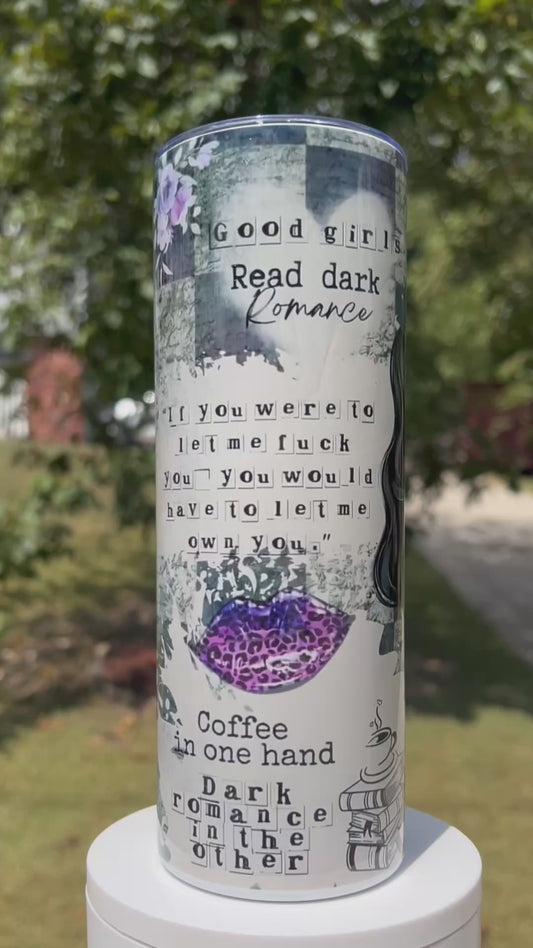 Good girls
Read dark
Romance
"If you were to
let me fuck
you you would
have to let me
own you."
Coffee
in one hand
Dark
romance
in the
other